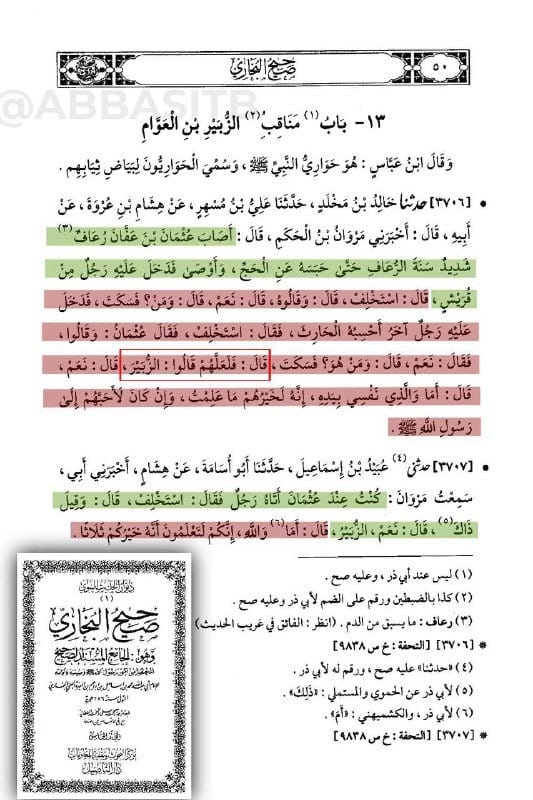 ٥٠
صحيح البخاري
@ABBASITB
١٣- بَابُ (١) مَنَاقِبُ (٢) الزُّبَيْرِ بْنِ الْعَوَّامِ
وَقَالَ ابْنُ عَبَّاسٍ : هُوَ حَوَارِيُّ النَّبِيِّ ﷺ ، وَسُمِّيَ الْحَوَارِيُّونَ لِبَيَاضِ ثِيَابِهِمْ .
• [٣٧٠٦] حدثنا خَالِدُ بْنُ مَخْلَدٍ ، حَدَّثَنَا عَلِيُّ بْنُ مُسْهِرٍ ، عَنْ هِشَامِ بْنِ عُرْوَةَ ، عَنْ
أَبِيهِ ، قَالَ : أَخْبَرَنِي مَرْوَانُ بْنُ الْحَكَمِ ، قَالَ : أَصَابَ عُثْمَانَ بْنَ عَفَّانَ رُعَافٌ (٣)
شَدِيدٌ سَنَةَ الرُّعَافِ حَتَّىٰ حَبَسَهُ عَنِ الْحَجِّ ، وَأَوْصَىٰ فَدَخَلَ عَلَيْهِ رَجُلٌ مِنْ
قُرَيْشٍ ، قَالَ : اسْتَخْلِفْ ، قَالَ : وَقَالُوهُ ، قَالَ : نَعَمْ ، قَالَ : وَمَنْ؟ فَسَكَتَ ، فَدَخَلَ
عَلَيْهِ رَجُلٌ آخَرُ أَحْسِبُهُ الْحَارِثَ ، فَقَالَ : اسْتَخْلِفْ ، فَقَالَ عُثْمَانُ : وَقَالُوا ،
فَقَالَ : نَعَمْ ، قَالَ : وَمَنْ هُوَ؟ فَسَكَتَ ، قَالَ : فَلَعَلَّهُمْ قَالُوا : الزُّبَيْرَ ، قَالَ : نَعَمْ ،
قَالَ : أَمَا وَالَّذِي نَفْسِي بِيَدِهِ ، إِنَّهُ لَخَيْرُهُمْ مَا عَلِمْتُ ، وَإِنْ كَانَ لَأَحَبَّهُمْ إِلَىٰ
رَسُولِ اللَّهِ ﷺ .
• [٣٧٠٧] حدثني (٤) عُبَيْدُ بْنُ إِسْمَاعِيلَ ، حَدَّثَنَا أَبُو أُسَامَةَ ، عَنْ هِشَامٍ ، أَخْبَرَنِي أَبِي ،
سَمِعْتُ مَرْوَانَ : كُنْتُ عِنْدَ عُثْمَانَ أَتَاهُ رَجُلٌ فَقَالَ : اسْتَخْلِفْ ، قَالَ : وَقِيلَ
ذَاكَ (٥) ، قَالَ : نَعَمْ ، الزُّبَيْرُ ، قَالَ : أَمَا (٦) وَاللَّهِ ، إِنَّكُمْ لَتَعْلَمُونَ أَنَّهُ خَيْرُكُمْ ثَلَاثًا .
(١) ليس عند أبي ذر ، وعليه صح .
(٢) كذا بالضبطين ورقم على الضم لأبي ذر وعليه صح .
(٣) رعاف : ما يسبق من الدم . (انظر : الفائق في غريب الحديث)
* [٣٧٠٦] [التحفة : خ س ٩٨٣٨]
(٤) «حدثنا» عليه صح ، ورقم له لأبي ذر .
(٥) لأبي ذر عن الحموي والمستملي : «ذَلِكَ» .
(٦) لأبي ذر ، والكشميهني : «أَمَ» .
* [٣٧٠٧] [التحفة : خ س ٩٨٣٨]
ديوان الحديث النبوي
(١)
صحيح البخاري
وهو : الجامع المسند الصحيح
مركز البحوث وتقنية المعلومات
دار التأصيل